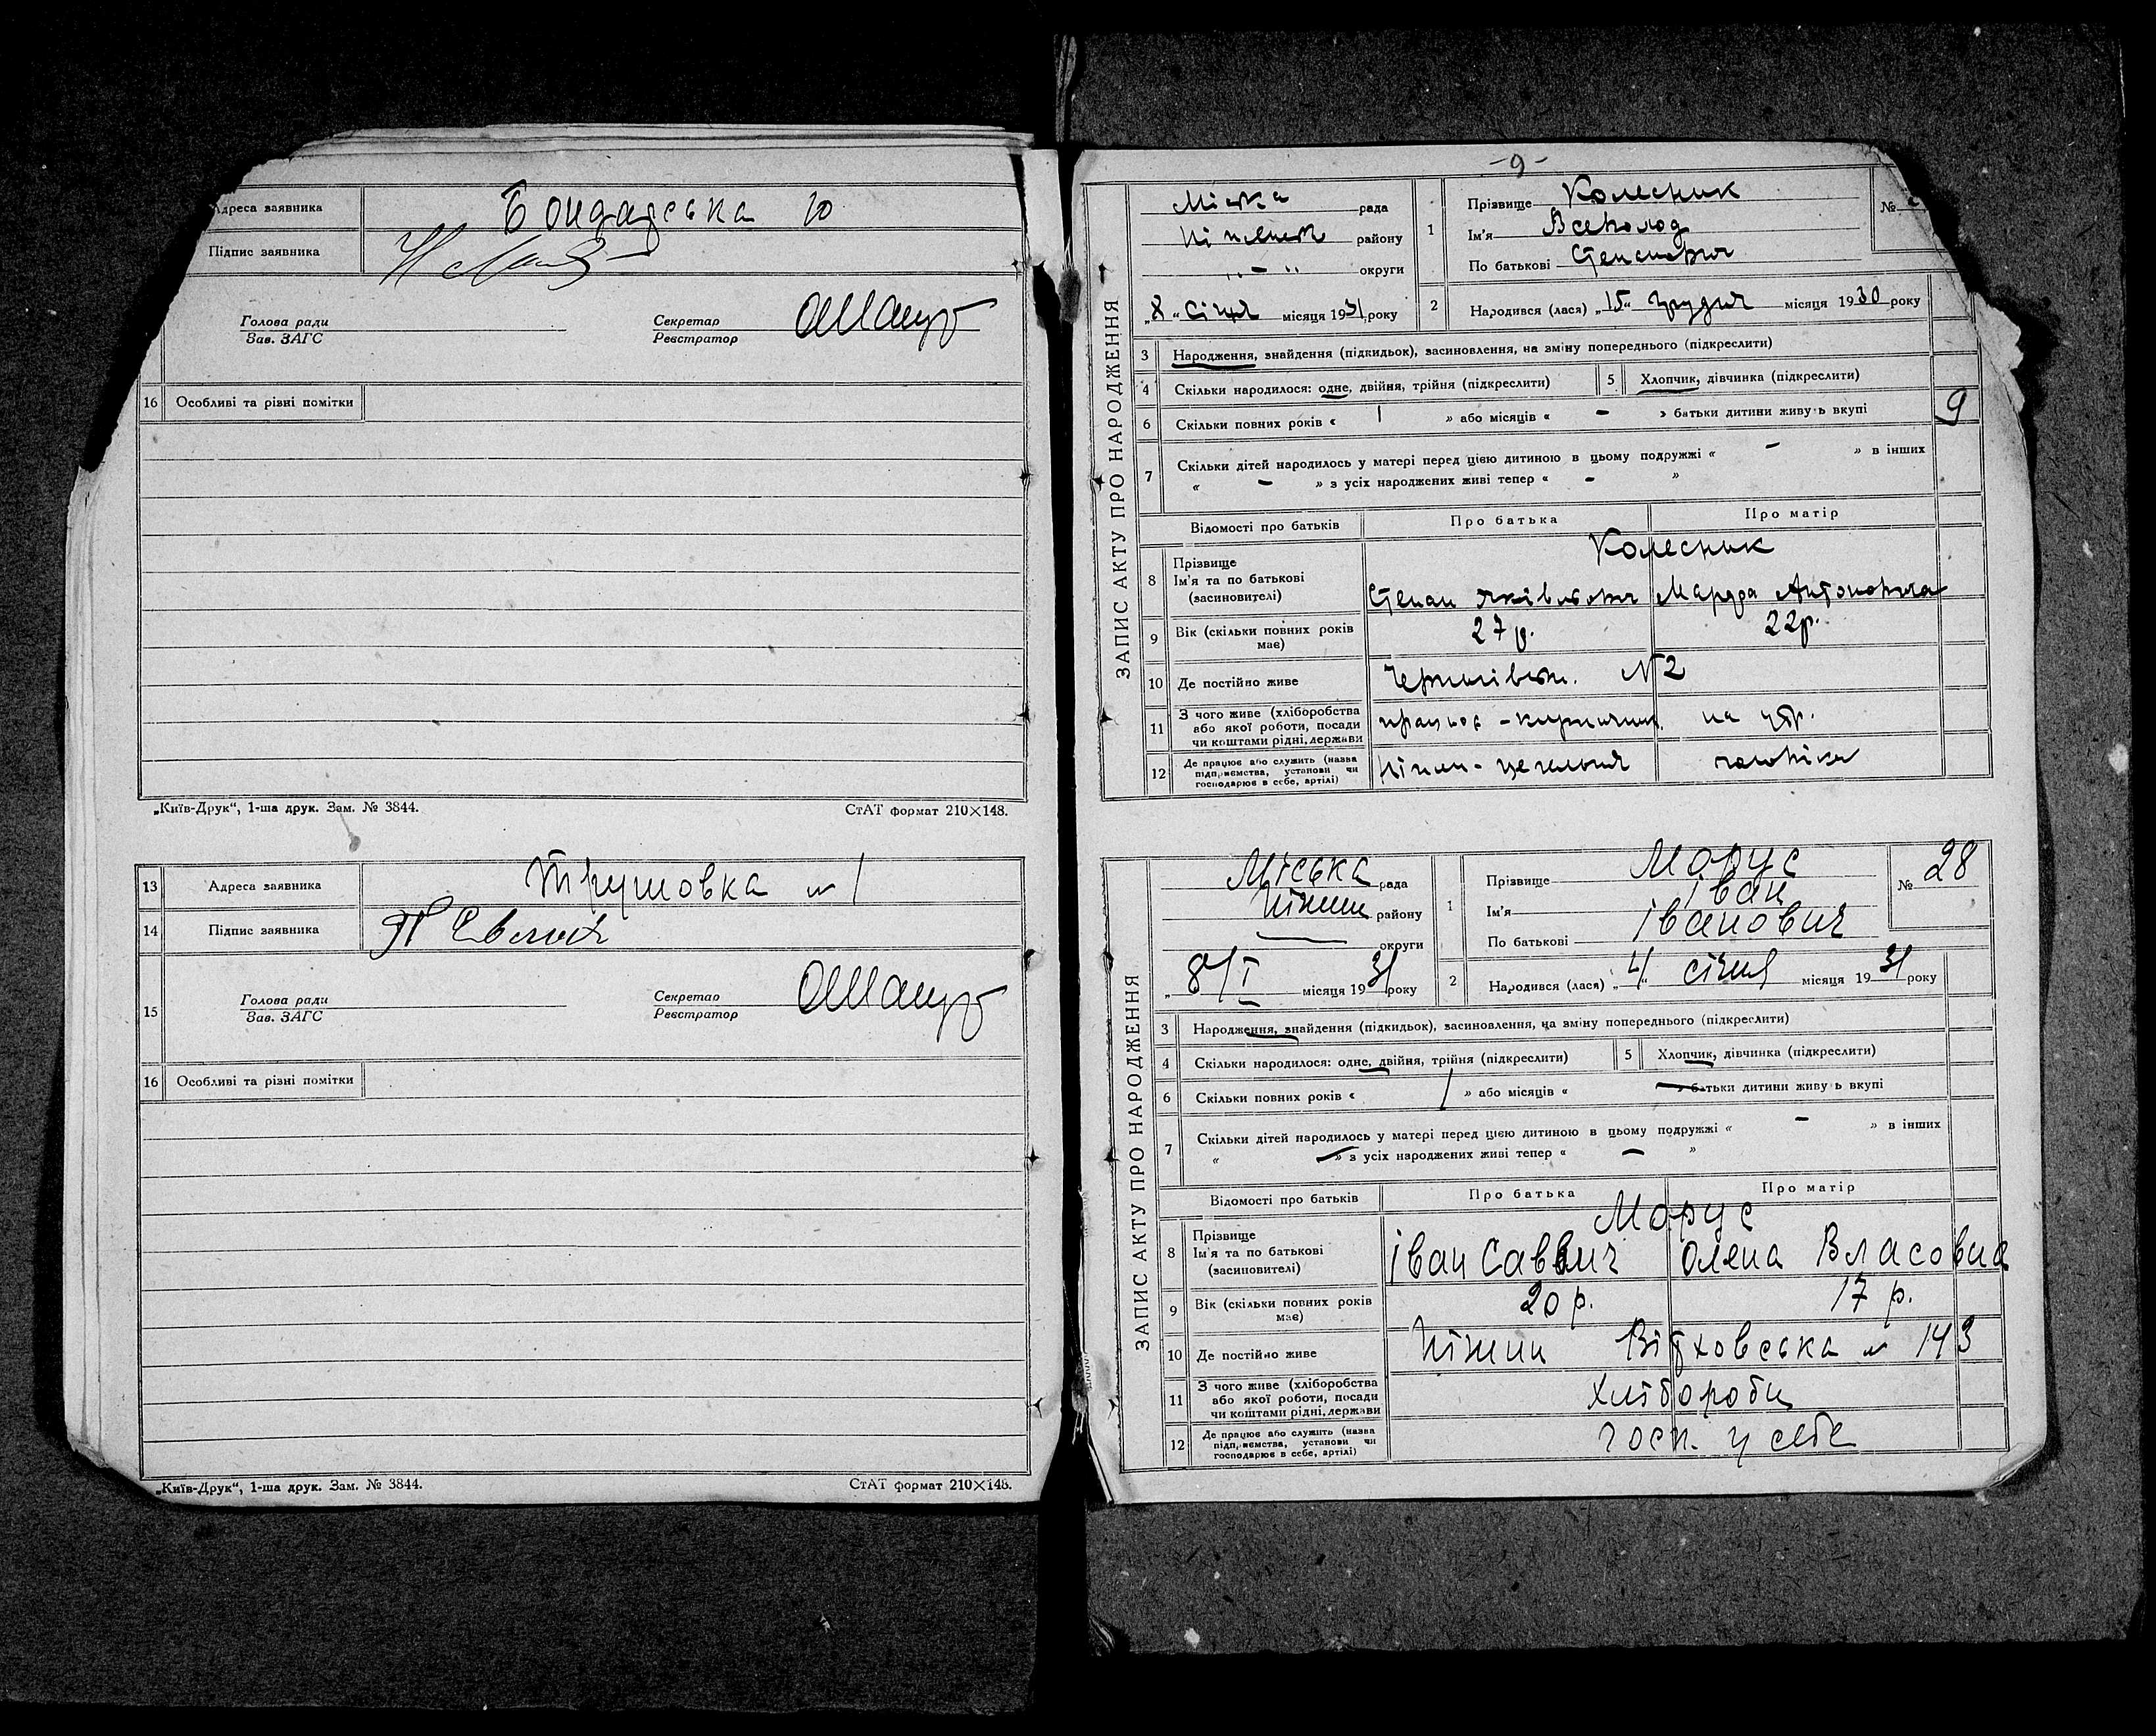 Адреса заявника Бондарська 10
Підпис заявника
Голова ради
Зав. ЗАГС
Секретар
Реєстратор
16 Особливі та різні помітки
„Київ-Друк“, 1-ша друк. Зам. № 3844. СтАТ формат 210×148.
13 Адреса заявника №1
14 Підпис заявника
15 Голова ради
Зав. ЗАГС
Секретар
Реєстратор
16 Особливі та різні помітки
„Київ-Друк“, 1-ша друк. Зам. № 3844. СтАТ формат 210×148.
-9-
ЗАПИС АКТУ ПРО НАРОДЖЕННЯ
Міська рада
району
„-“ округи
„8“ січня місяця 1931 року
1 Прізвище Колесник
Ім'я Всеволод
По батькові Степанович
№
2 Народився (лася) „15“ грудня місяця 1930 року
3 Народження, знайдення (підкидьок), засиновлення, на зміну попереднього (підкреслити)
4 Скільки народилося: одне, двійня, трійня (підкреслити) 5 Хлопчик, дівчинка (підкреслити)
6 Скільки повних років « 1 » або місяців « - » батьки дитини живуть вкупі 9
7 Скільки дітей народилось у матері перед цією дитиною в цьому подружжі « - » в інших
« - » з усіх народжених живі тепер « - »
Відомості про батьків Про батька Про матір
8 Прізвище Колесник
Ім'я та по батькові
(засиновителі) Степан Якович Марфа Антоновна
9 Вік (скільки повних років має) 27 р. 22 р.
10 Де постійно живе Чернігівськ. №2
11 З чого живе (хліборобства
або якої роботи, посади
чи коштами рідні, держави на утр.
12 Де працює або служить (назва
підприємства, установи чи
господарює в себе, артілі) Ніжин - цегельня чоловіка
ЗАПИС АКТУ ПРО НАРОДЖЕННЯ
Міська рада
Ніжин району
— округи
„8/I місяця 1931 року
1 Прізвище Морус
Ім'я Іван
По батькові Іванович
№ 28
2 Народився (лася) „4“ січня місяця 1931 року
3 Народження, знайдення (підкидьок), засиновлення, на зміну попереднього (підкреслити)
4 Скільки народилося: одне, двійня, трійня (підкреслити) 5 Хлопчик, дівчинка (підкреслити)
6 Скільки повних років « 1 » або місяців « - » батьки дитини живуть вкупі
7 Скільки дітей народилось у матері перед цією дитиною в цьому подружжі « - » в інших
« - » з усіх народжених живі тепер « - »
Відомості про батьків Про батька Про матір
8 Прізвище Морус
Ім'я та по батькові
(засиновителі) Іван Саввич Олена Власовна
9 Вік (скільки повних років має) 20 р. 17 р.
10 Де постійно живе Ніжин № 143
11 З чого живе (хліборобства
або якої роботи, посади
чи коштами рідні, держави Хлібороби
12 Де працює або служить (назва
підприємства, установи чи
господарює в себе, артілі) Госп. у себе